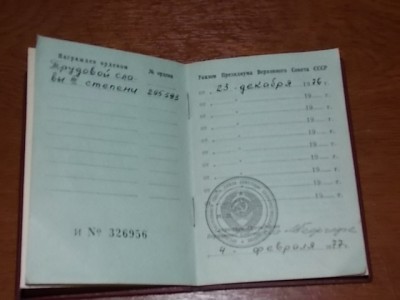 Награжден орденом № ордена
Трудовой Сла-
вы III степени 205585
И № 326956
Указом Президиума Верховного Совета СССР
от 23 декабря 1976 г.
от 19 г.
от 19 г.
от 19 г.
от 19 г.
от 19 г.
от 19 г.
от 19 г.
от 19 г.
4 февраля 1977 г.